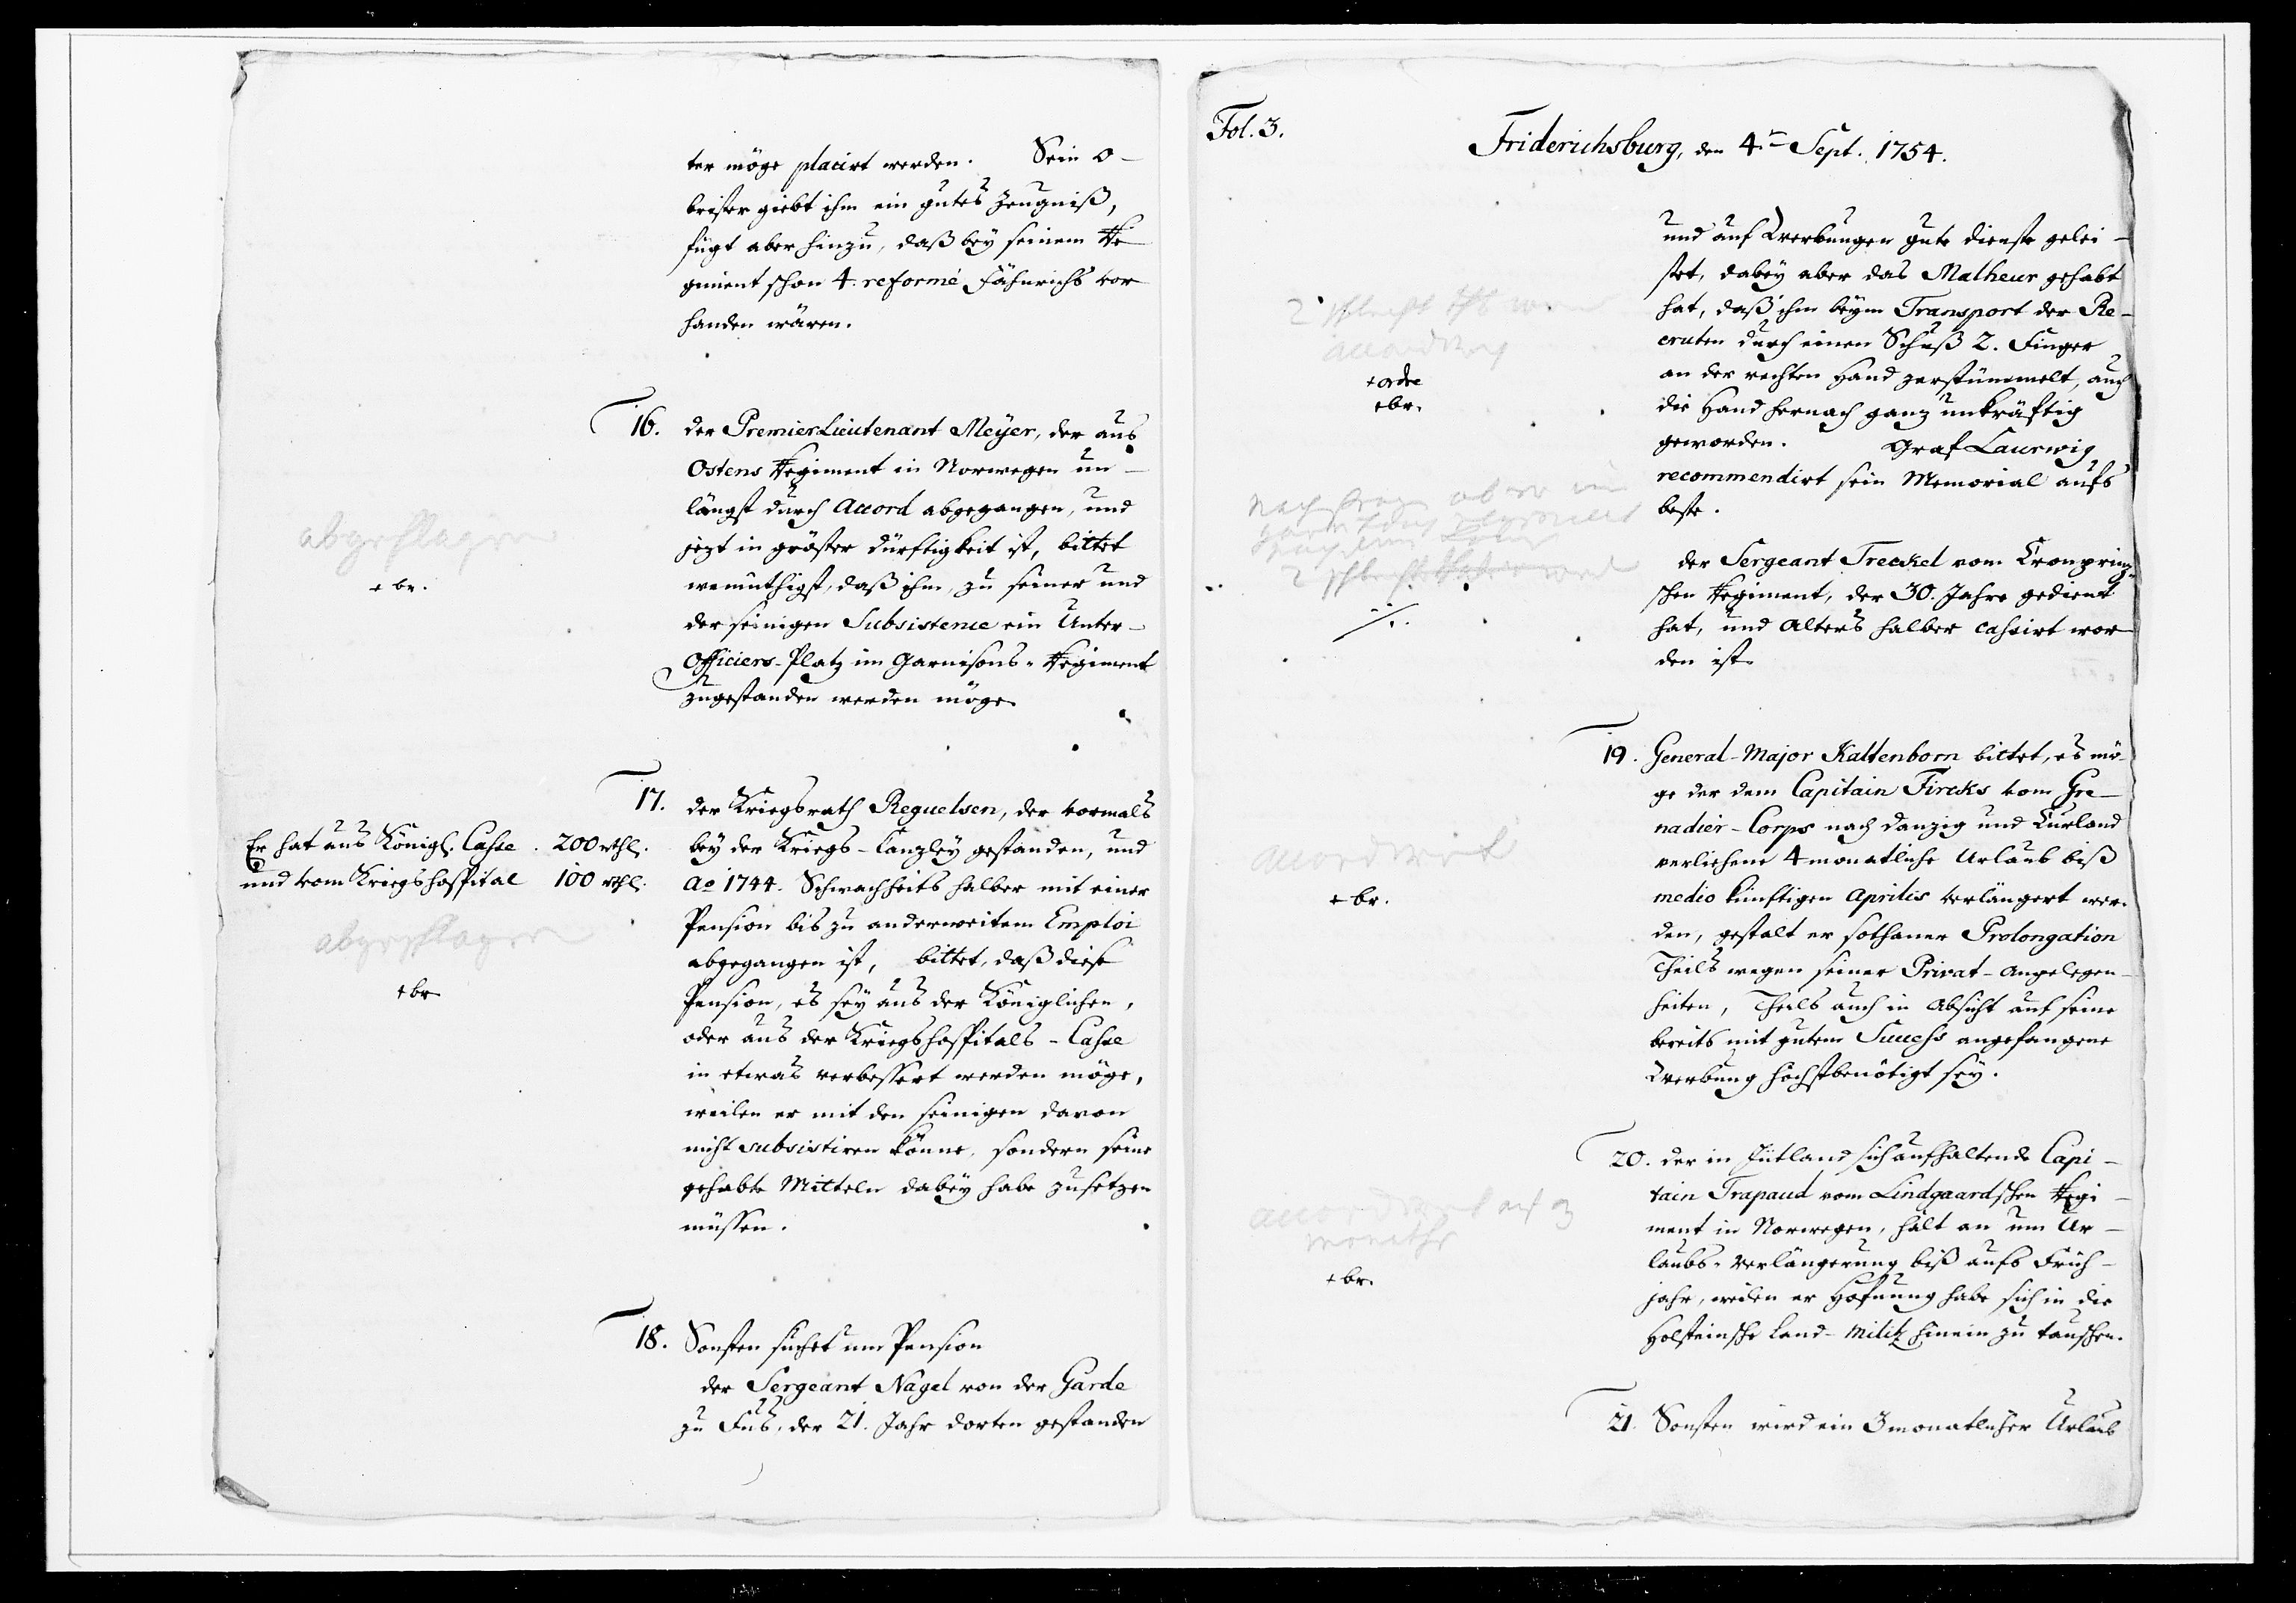 ter möge placirt werden. Sein O-
brister giebt ihm ein gutes Zeugniß,
fügt aber hinzu, daß bey seinem Re
giment schon 4. reformé Fähnrichs vor
handen wären.
16. der PremierLieutenant Meyer, der aus
Ostens Regiment in Norwegen un-
längst durch Accord abgegangen, und
jezt in gröster Dürftigkeit ist, bittet
wemüthigst, daß ihm, zu seiner und
der seinigen Subsistence ein Unter-
Officiers-Platz im Garnisons-Regiment
zugestanden werden möge.
abgeschlagen
+ br.
17. der Kriegsrath Reguelsen, der vormals
bey der Kriegs-Canzley gestanden, und
Ao 1744. Schwachheits halber mit einer
Pension bis zu anderweitem Emploi
abgegangen ist, bittet, daß diese
Pension, es sey aus der Königlichen,
oder aus der Kriegshospitals-Casse
in etwas verbessert werden möge,
weilen er mit den seinigen davon
nicht subsistiren könne, sondern seine
gehabte Mitteln dabey habe zusetzen
müssen.
Er hat aus Königl. Casse . 200 rthl.
und vom Kriegshospital 100 rthl.
abgeschlagen
+ br
18. Sonsten suchet um Pension
der Sergeant Nagel von der Garde
zu Fuß, der 21. Jahr dorten gestanden
Fol. 3.
Friderichsburg, den 4.ten Sept. 1754.
und auf Werbungen gute Dienste gelei-
stet, dabey aber das Malheur gehabt
hat, daß ihm beym Transport der Re-
cruten durch einen Schuß 2. Finger
an der rechten Hand zerstümmelt, auch
die Hand hernach ganz unkräftig
geworden. Graf Laurwig
recommendirt sein Memorial aufs
beste.
2 schlecht
accordirt
+ ordre
+ br.
der Sergeant Treckel vom Cronprinz-
schen Regiment, der 30. Jahre gedient
hat, und Alters halber cassirt wor
den ist.
nach aber
2 schlecht
./.
19. General-Major Kaltenborn bittet, es mö-
ge der dem Capitain Fircks vom Gre-
nadier-Corps nach Danzig und Curland
verliehene 4 monatliche Urlaub biß
medio künftigen Aprilis verlängert wer-
den, gestalt er sothaner Prolongation
Theils wegen seiner Privat-Angelegen-
heiten, Theils auch in Absicht auf seine
bereits mit gutem Success angefangene
Werbung höchstbenötigt sey.
accordirt
+ br.
20. der in Jütland sich aufhaltende Capi-
tain Trapaud vom Lindgaardschen Regi-
ment in Norwegen, hält an um Ur-
laubs-Verlängerung biß aufs Früh-
jahr, weilen er Hofnung habe sich in die
Holsteinsche Land-Militz hinein zu tauschen.
accordirt auf 3
monathe
+ br.
21. Sonsten wird ein 3 monatlicher Urlaub